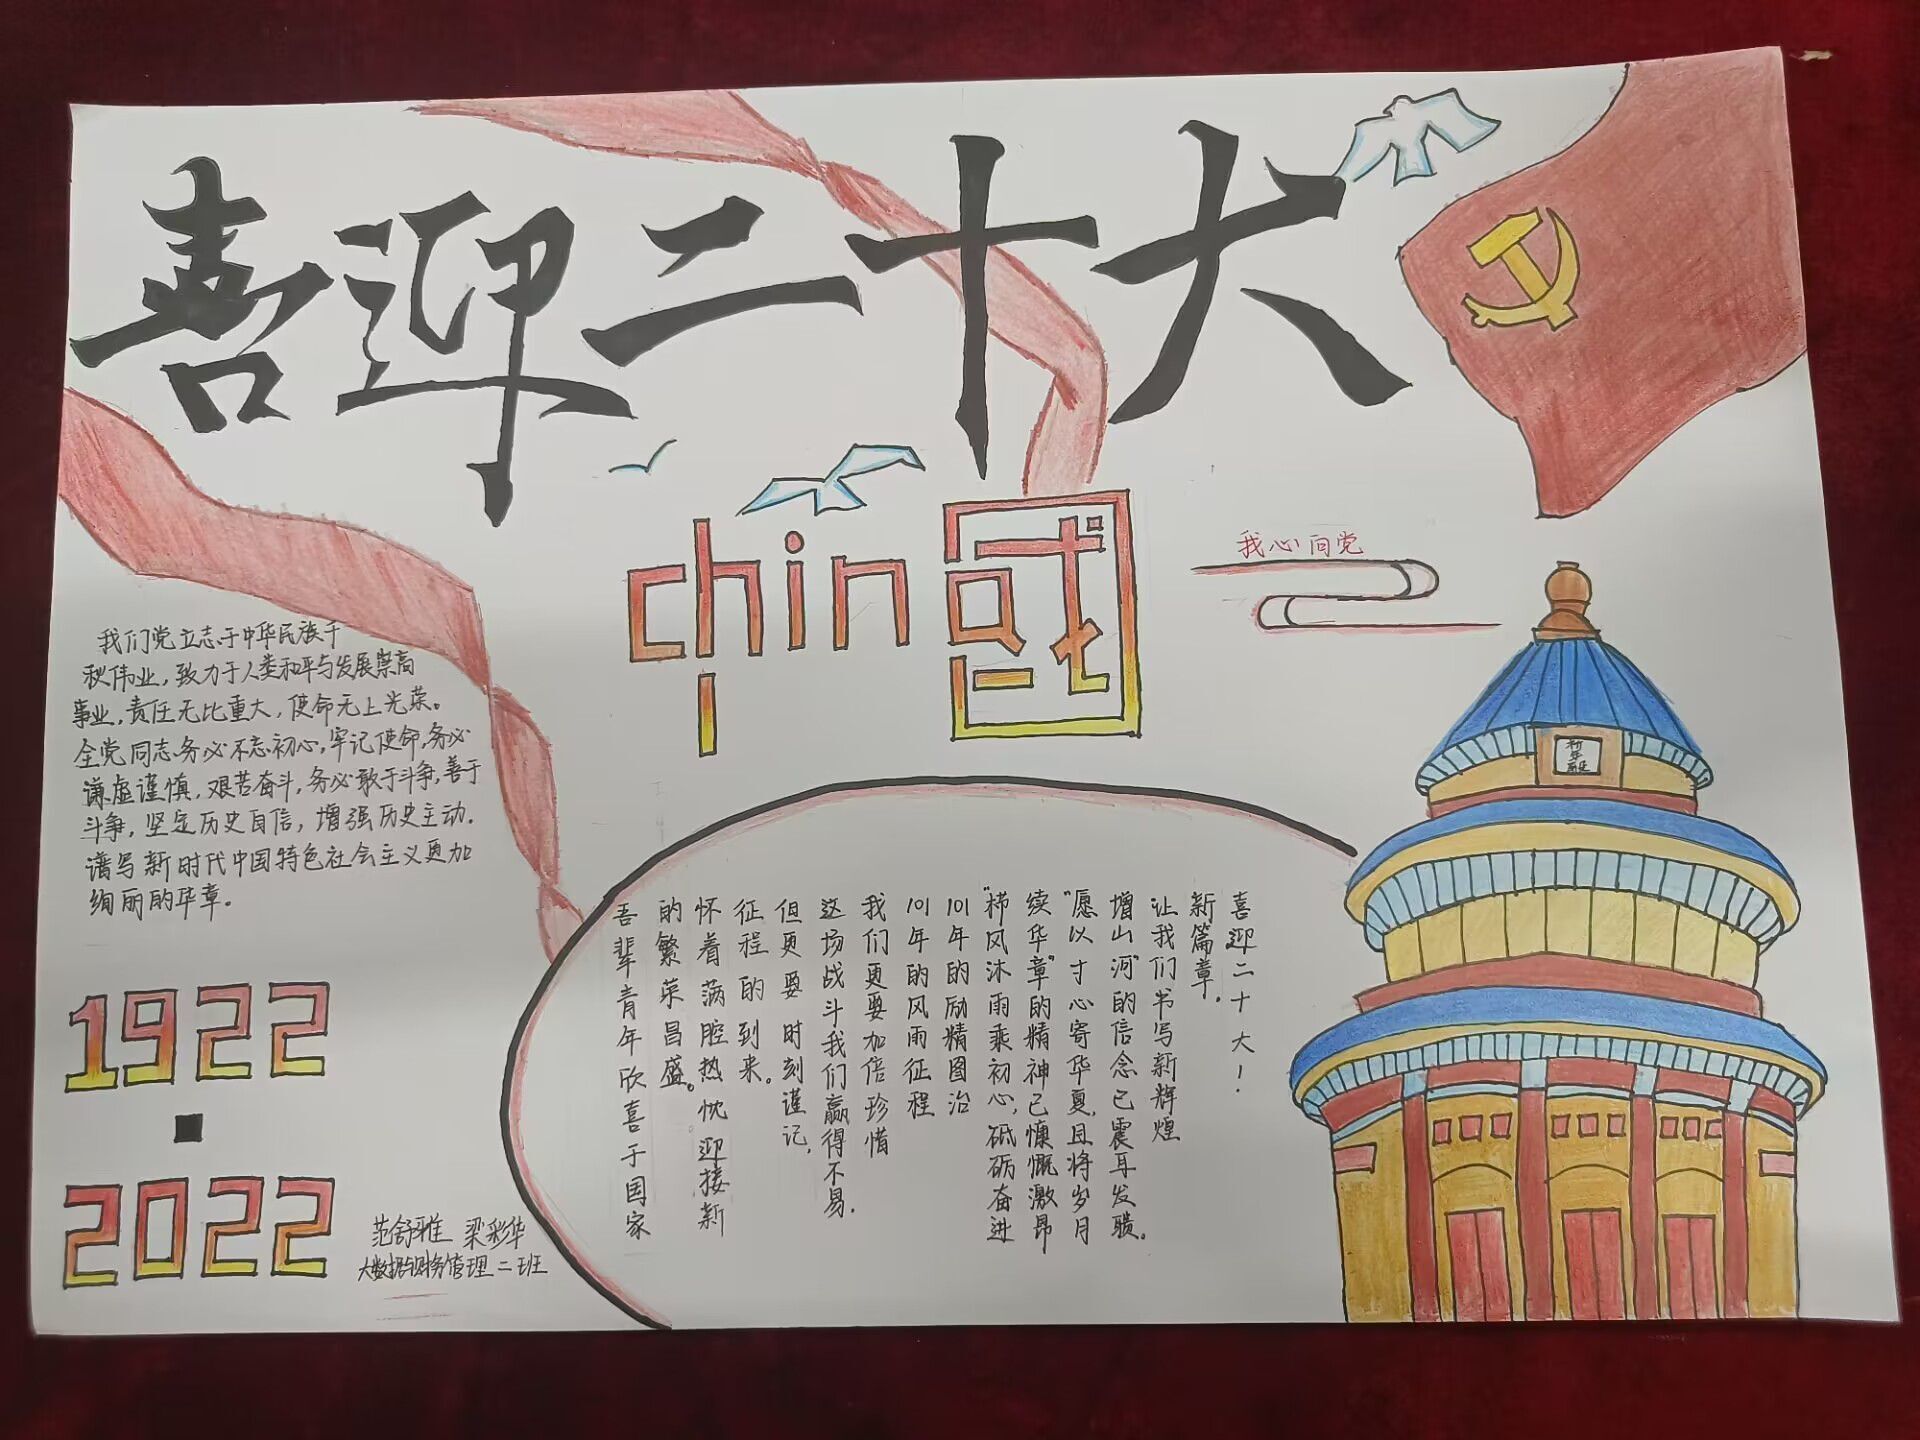 喜迎二十大
china国
我心向党
祈年殿
我们党立志于中华民族千
秋伟业，致力于人类和平与发展崇高
事业，责任无比重大，使命无上光荣。
全党同志务必不忘初心，牢记使命，务必
谦虚谨慎，艰苦奋斗，务必敢于斗争，善于
斗争，坚定历史自信，增强历史主动。
谱写新时代中国特色社会主义更加
绚丽的华章。
吾辈青年欣喜于国家
的繁荣昌盛。
怀着满腔热忱迎接新
征程的到来。
但更要时刻谨记，
这场战斗我们赢得不易.
我们更要加倍珍惜
101年的风雨征程
101年的励精图治
“栉风沐雨乘初心，砥砺奋进
续华章”的精神已慷慨激昂
“愿以寸心寄华夏，且将岁月
增山河”的信念已震耳发聩。
让我们书写新辉煌
新篇章。
喜迎二十大！
1922
2022
范舒雅 梁彩华
大数据与财务管理二班